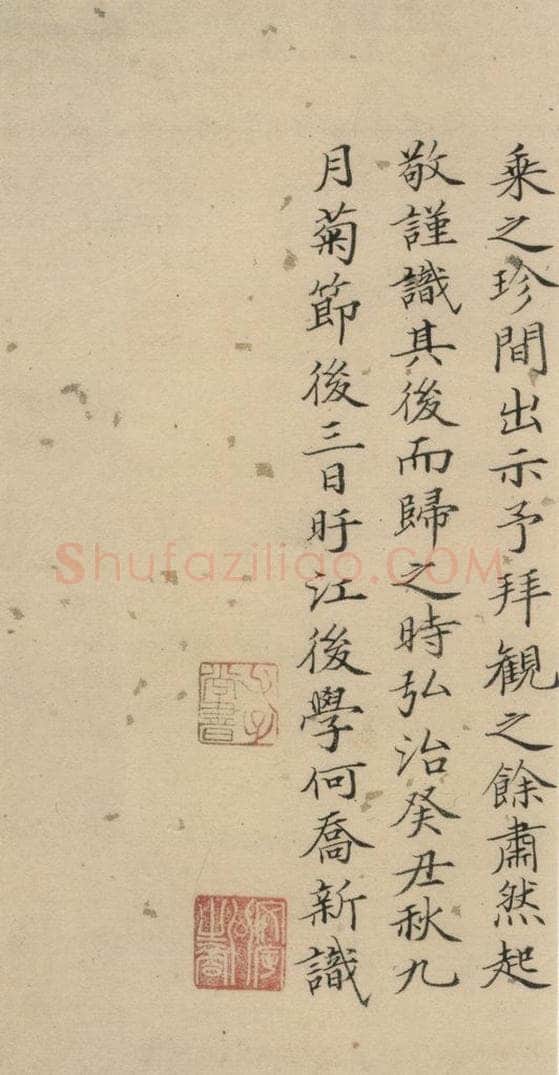 乘之珍間出示予拜觀之餘肅然起
敬謹識其後而歸之時弘治癸丑秋九
月菊節後三日盱江後學何喬新識
Shufaziliao.COM